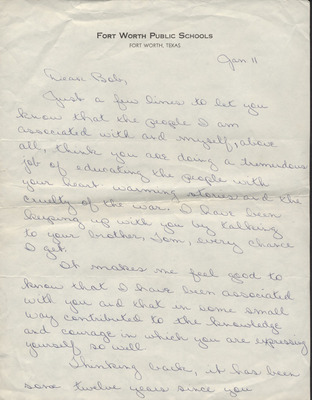 FORT WORTH PUBLIC SCHOOLS
FORT WORTH, TEXAS
Jan 11
Dear Bob,
Just a few lines to let you
know that the people I am
associated with and myself, above
all, think you are doing a tremendous
job of educating the people with
your heart warming stories and the
cruelty of the war. I have been
keeping up with you by talking
to your brother, Tom, every chance
I get.
It makes me feel good to
know that I have been associated
with you and that in some small
way contributed to the knowledge
and courage in which you are expressing
yourself so well.
Thinking back, it has been
some twelve years since you